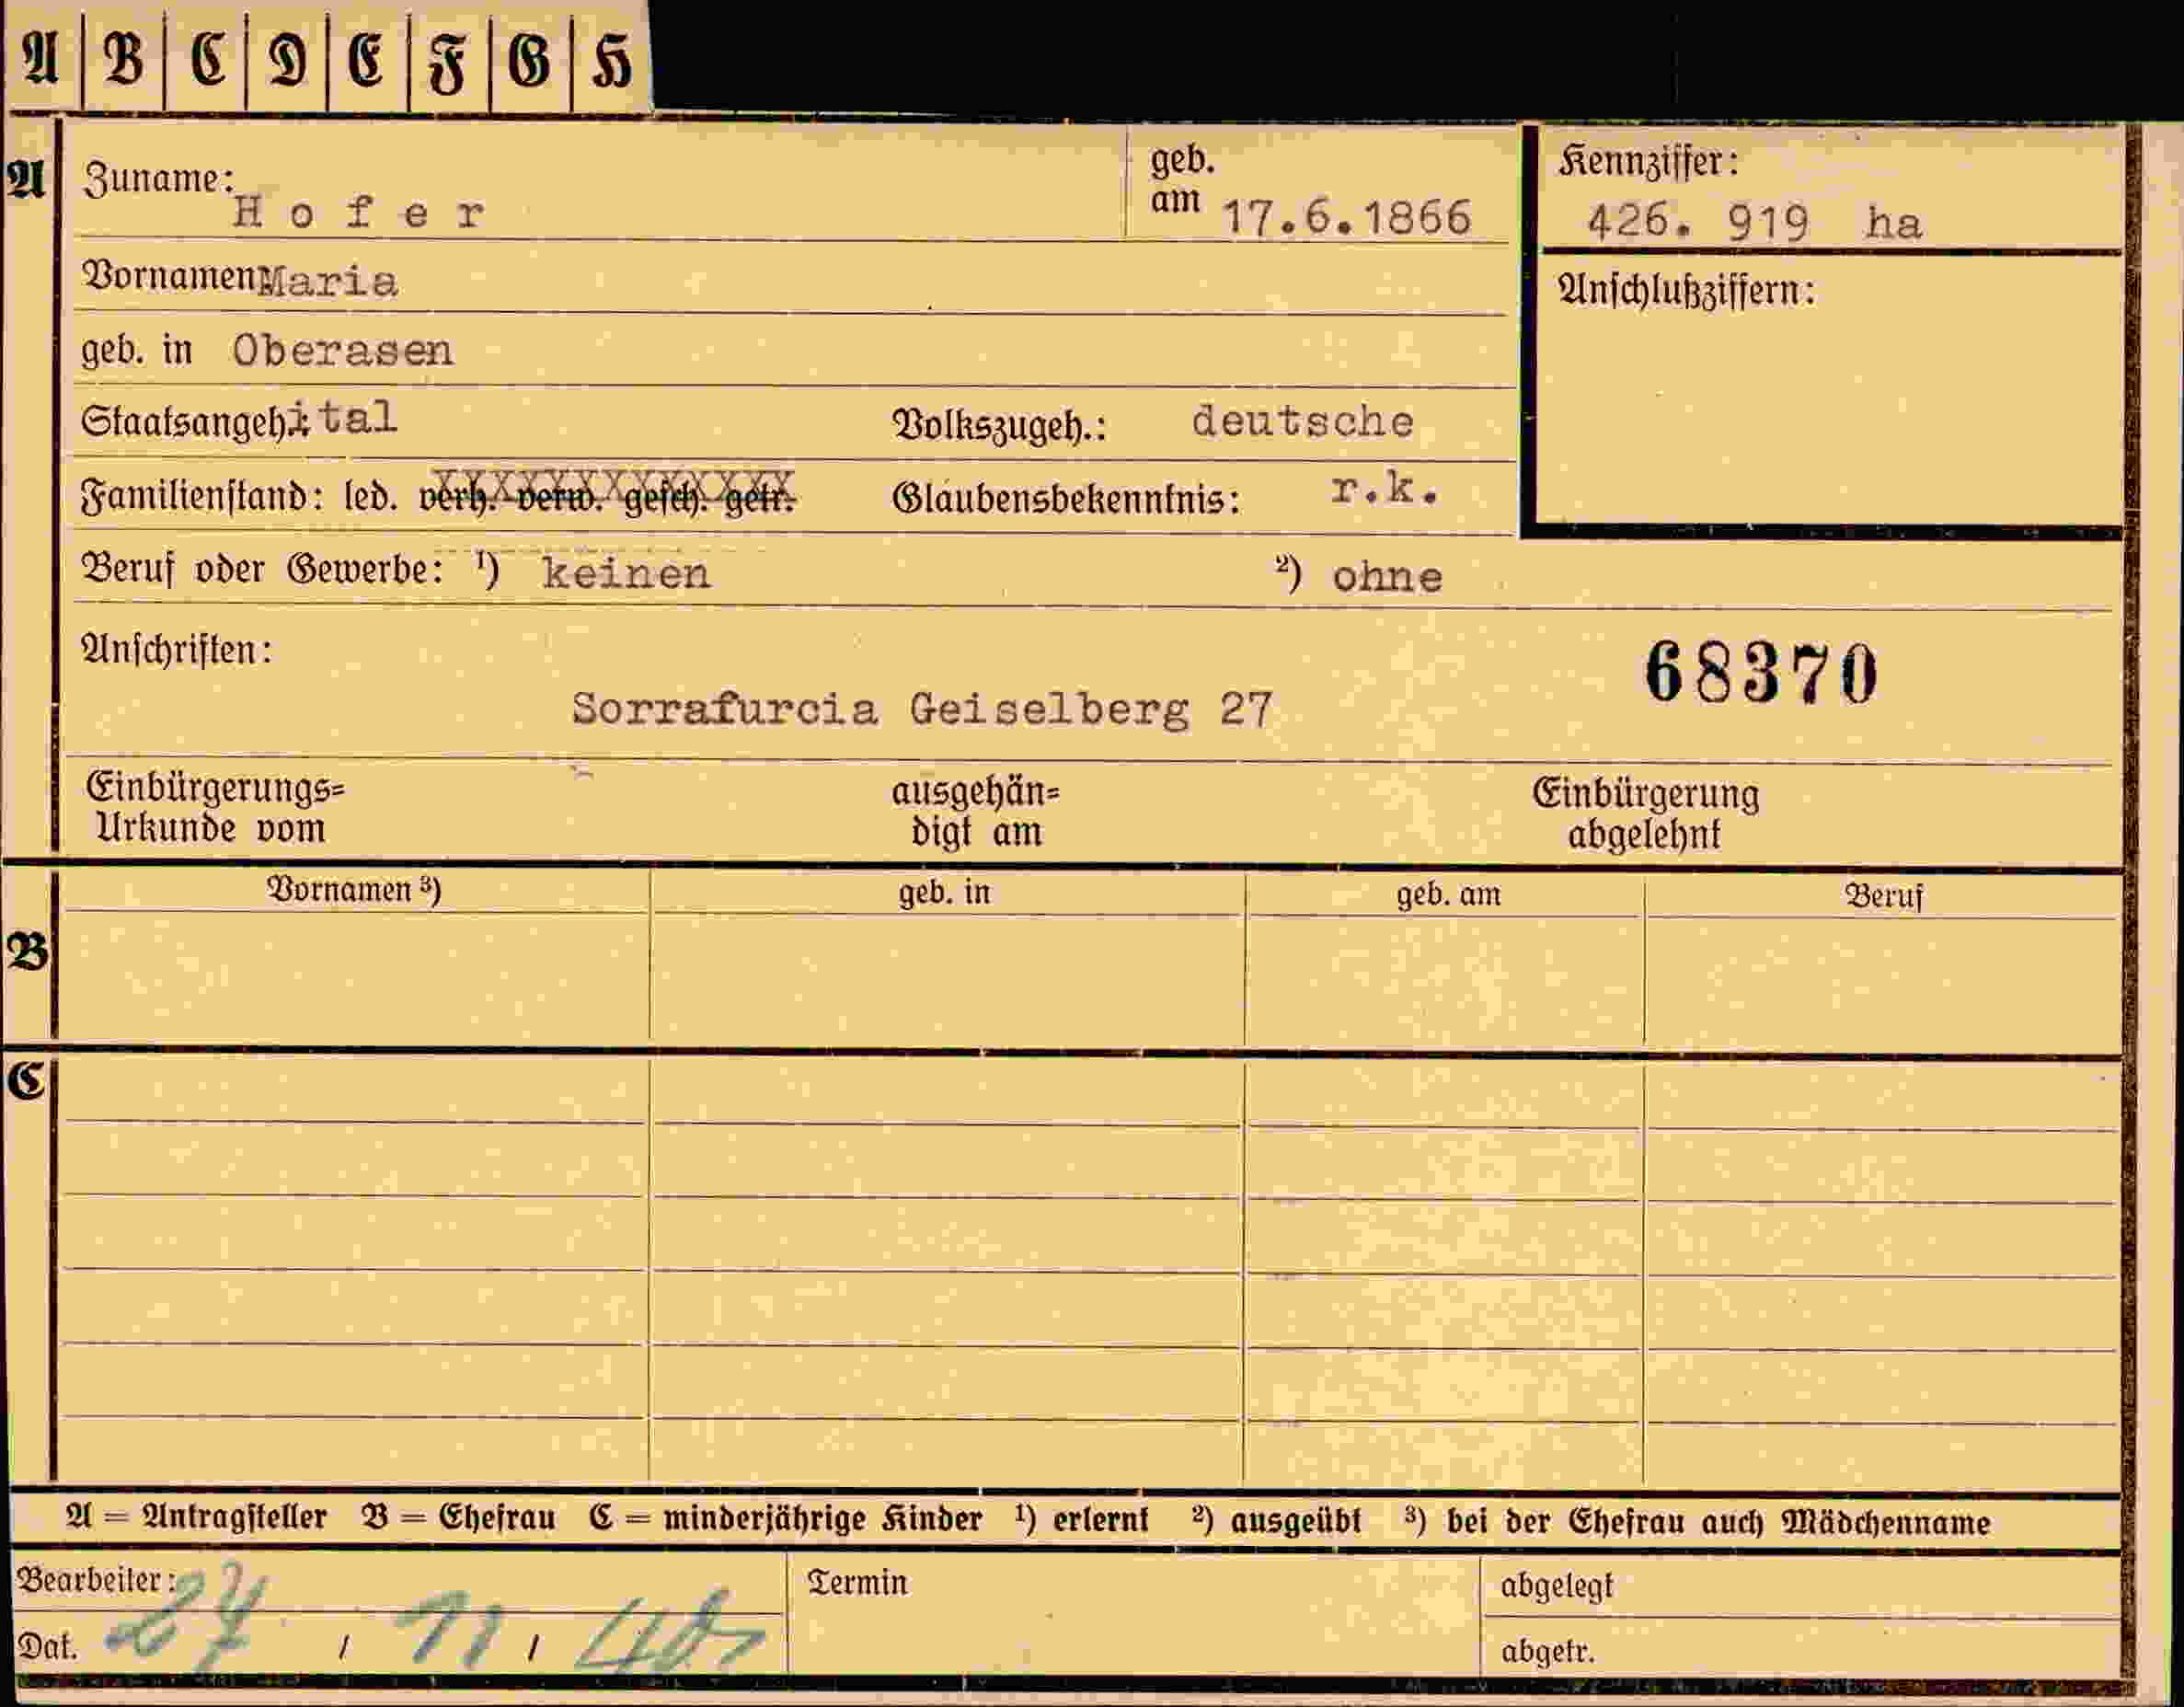 A B C D E F G H
A Zuname: Hofer geb. am 17.6.1866 Kennziffer: 426. 919 ha
Vornamen Maria Anschlußziffern:
geb. in Oberasen
Staatsangeh. ital Volkszugeh.: deutsche
Familienstand: led. verh. verw. gesch. getr. Glaubensbekenntnis: r.k.
Beruf oder Gewerbe: 1) keinen 2) ohne
Anschriften: 68370
Sorrafurcia Geiselberg 27
Einbürgerungs= ausgehän= Einbürgerung
Urkunde vom digt am abgelehnt
Vornamen 3) geb. in geb. am Beruf
B
C
A = Antragsteller B = Ehefrau C = minderjährige Kinder 1) erlernt 2) ausgeübt 3) bei der Ehefrau auch Mädchenname
Bearbeiter: Termin abgelegt
Dat. / 11 / 40 abgetr.